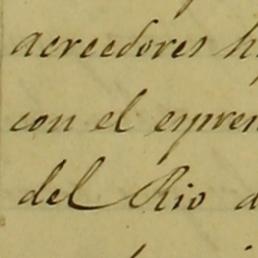 acreedores h
con el espren
del Rio d